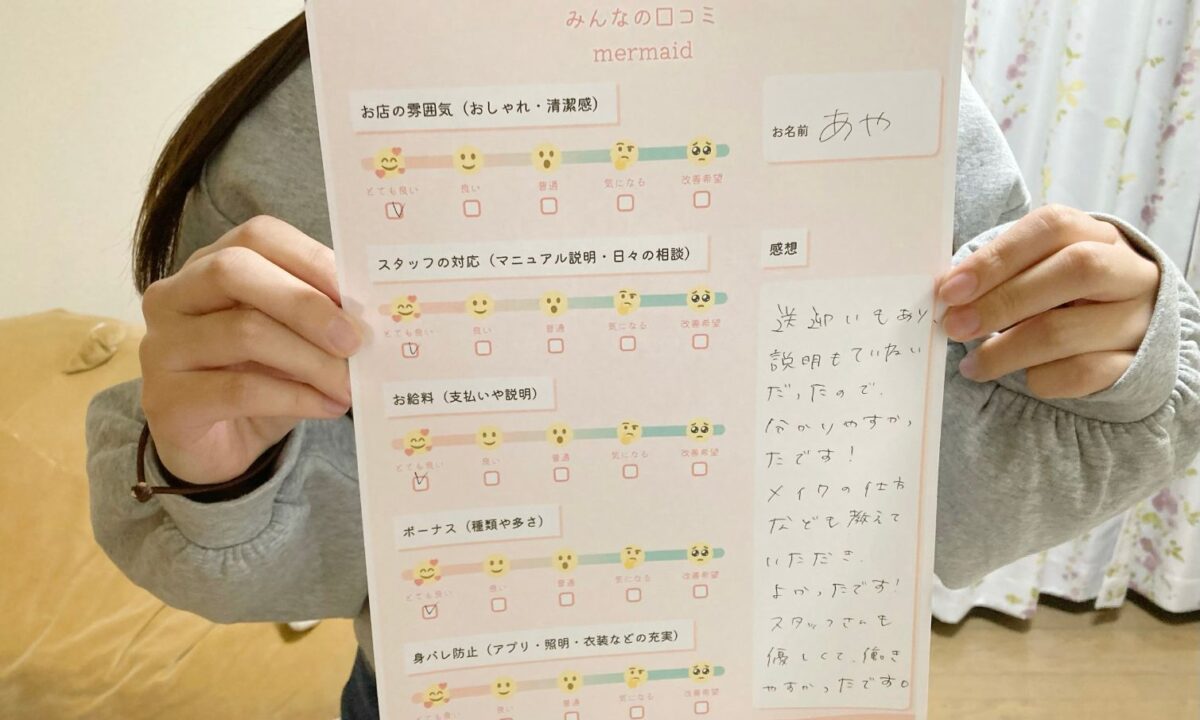 みんなの口コミ
mermaid
お店の雰囲気（おしゃれ・清潔感）
とても良い 良い 普通 気になる 改善希望
スタッフの対応（マニュアル説明・日々の相談）
とても良い 良い 普通 気になる 改善希望
お給料（支払いや説明）
とても良い 良い 普通 気になる 改善希望
ボーナス（種類や多さ）
とても良い 良い 普通 気になる 改善希望
身バレ防止（アプリ・照明・衣装などの充実）
とても良い 良い 普通 気になる 改善希望
お名前 あや
感想
送迎いもあり、
説明もていねい
だったので、
分かりやすかっ
たです！
メイクの仕方
なども教えて
いただき、
よかったです！
スタッフさんも
優しくて、働き
やすかったです。